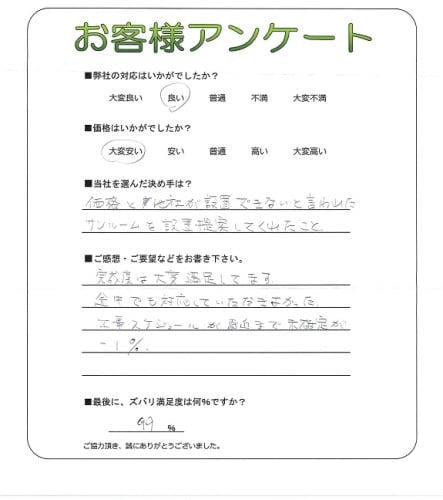 お客様アンケート
■弊社の対応はいかがでしたか?
大変良い 良い 普通 不満 大変不満
■価格はいかがでしたか?
大変安い 安い 普通 高い 大変高い
■当社を選んだ決め手は?
価格と他社が設置できないと言われた
サンルームを設置提案してくれたこと
■ご感想・ご要望などをお書き下さい。
完成度は大変満足してます。
途中でも対応していただきよかった
工事スケジュールが直近まで未確定が
-1%.
■最後に、ズバリ満足度は何%ですか?
99 %
ご協力頂き、誠にありがとうございました。